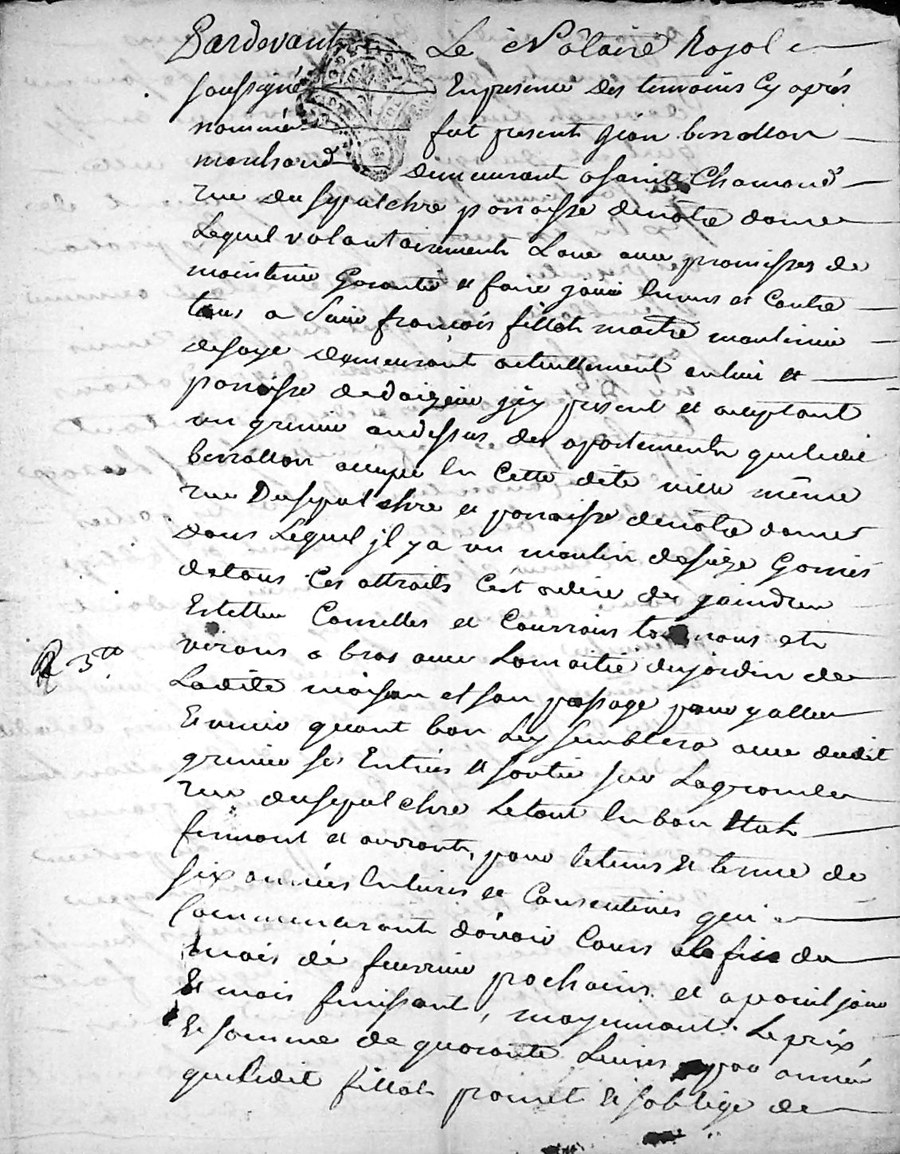 Pardevant Le Notaire Royal
soussigné En presence des temoins Cy aprés
nommés fut present Jean berrallon
marchand demeurant a saint Chamond
rue du sepulchre parroisse denotre dame
Lequel volontairement Loue avec promesses de
maintenir Garantir et faire jouir envers et Contre
tous a sieur françois fillat maitre moulinier
desoye demeurant actuellement en lieu et
parroisse de doizieu jcy present et acceptant
un grenier audessus des apartements queledit
berrallon occupe En Cette dite ville même
rue Dusepulchre et parroisse denotre dame
dans Lequel jl y a un moulin desoye Garnis
detous Ces attraits C'est adire de
Et Courroies tournant et
virant a bras avec Lamoitié dujardin de
Ladite maison et son passage pour y aller
Et venir quant bon Luy semblera avec dudit
grenier ses Entrées et sortie sur Lagrande
rue dusepulchre Letout En bon Etat
fermant et ouvrant, pour letems et terme de
six années Entieres et Consecutives qui
Commenceront d'avoir Cours ala fin du
mois de fevrier prochain et apareil jour
Et mois finissant, moyennant Le prix
Et somme de quarante Livres par année
queledit fillat promet et s'oblige de
R 3